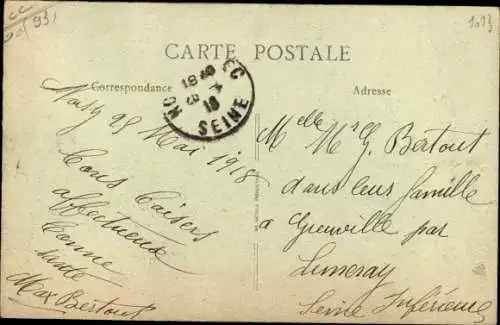 CARTE POSTALE
Correspondance
Adresse
SEINE
28 Mai 1918
Bons Baisers
affectueux
Bonne
santé
Max Bertout
Melle M G. Bertout
dans leur famille
à Greuville par
Luneray
Seine Inférieure